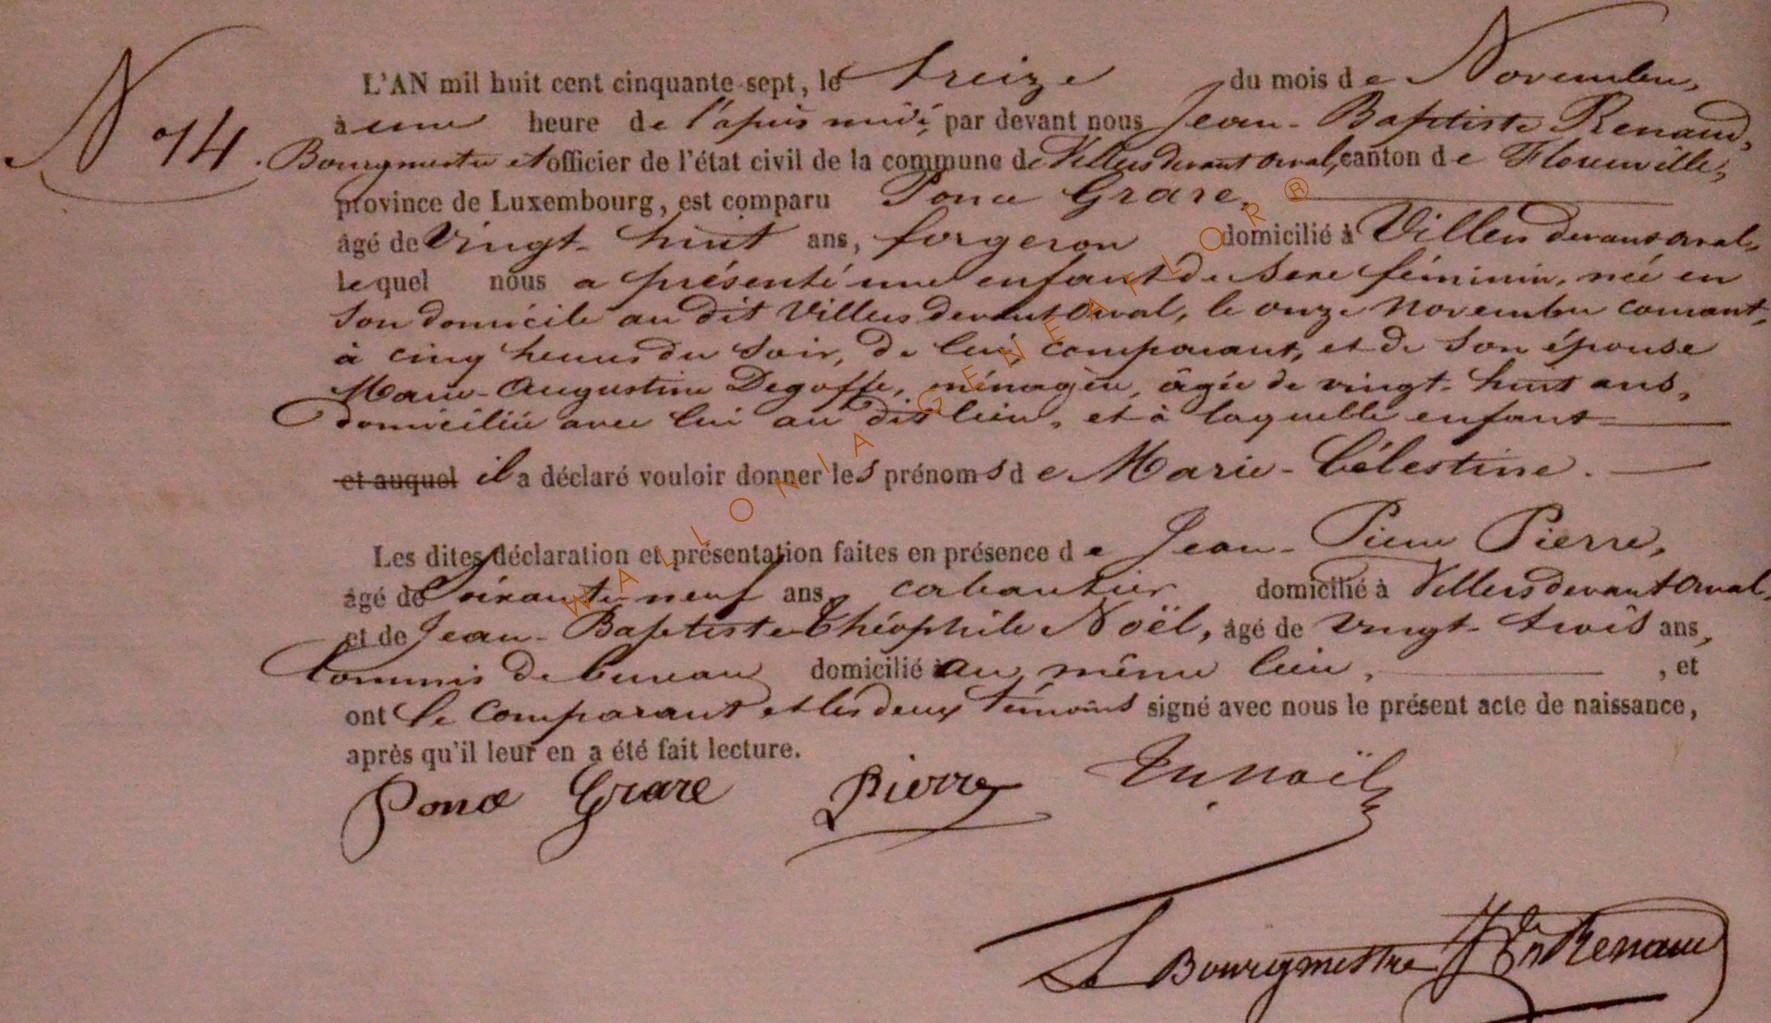 N° 14.
L'AN mil huit cent cinquante-sept, le treize du mois de Novembre,
à une heure de l'après midi, par devant nous Jean-Baptiste Renaud,
Bourgmestre et officier de l'état civil de la commune de Villers devant Orval, canton de Florenville,
province de Luxembourg, est comparu Ponce Grare,
âgé de vingt-huit ans, forgeron domicilié à Villers devant orval,
lequel nous a présenté une enfant de sexe féminin, née en
son domicile au dit Villers devant Orval, le onze novembre courant,
à cinq heures du soir, de lui comparant, et de son épouse
Marie-Augustine Degoffe, ménagère, âgée de vingt-huit ans,
domiciliée avec lui au dit lieu, et à laquelle enfant
et auquel il a déclaré vouloir donner les prénoms de Marie-Célestine.
Les dites déclaration et présentation faites en présence de Jean-Pierre Pierre,
âgé de soixante neuf ans, cabaretier domicilié à Villers devant Orval,
et de Jean-Baptiste Théophile Noël, âgé de vingt-trois ans,
commis de bureau domicilié au même lieu, , et
ont le comparant et les deux témoins signé avec nous le présent acte de naissance,
après qu'il leur en a été fait lecture.
Ponce Grare Pierre Noël
Le Bourgmestre Renaud
WALLONIA GENEAFLOR ®